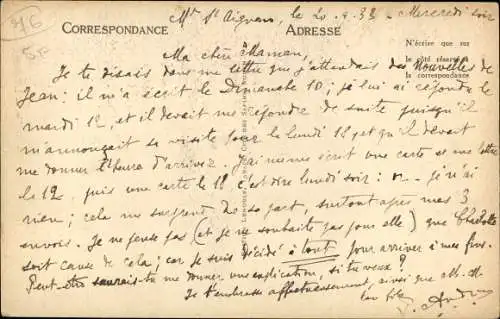 Mt St Aignan, le 20.9.33 - Mercredi soir
CORRESPONDANCE ADRESSE
N'écrire que sur
le côté réservé à
la correspondance
Ma chère Maman,
Je te disais dans ma lettre que j'attendais des Nouvelles de
Jean; il m'a écrit le Dimanche 10; je lui ai répondu le
mardi 12, et il devait me répondre de suite puisqu'il
m'annonçait sa visite pour le lundi 18 et qu'il devait
me donner l'heure d'arrivée. J'ai même écrit une carte et une lettre
le 12, puis une carte le 18 c'est dire lundi soir: or je n'ai
rien; cela me surprend de sa part, surtout après mes 3
envois. Je ne pense pas (et je ne souhaite pas pour elle) que
soit cause de cela; car je suis décidé à tout pour arriver à mes fins.
Peut-être saurais-tu me donner une explication, si tu veux?
Je t'embrasse affectueusement, ainsi que M.M.
ton fils